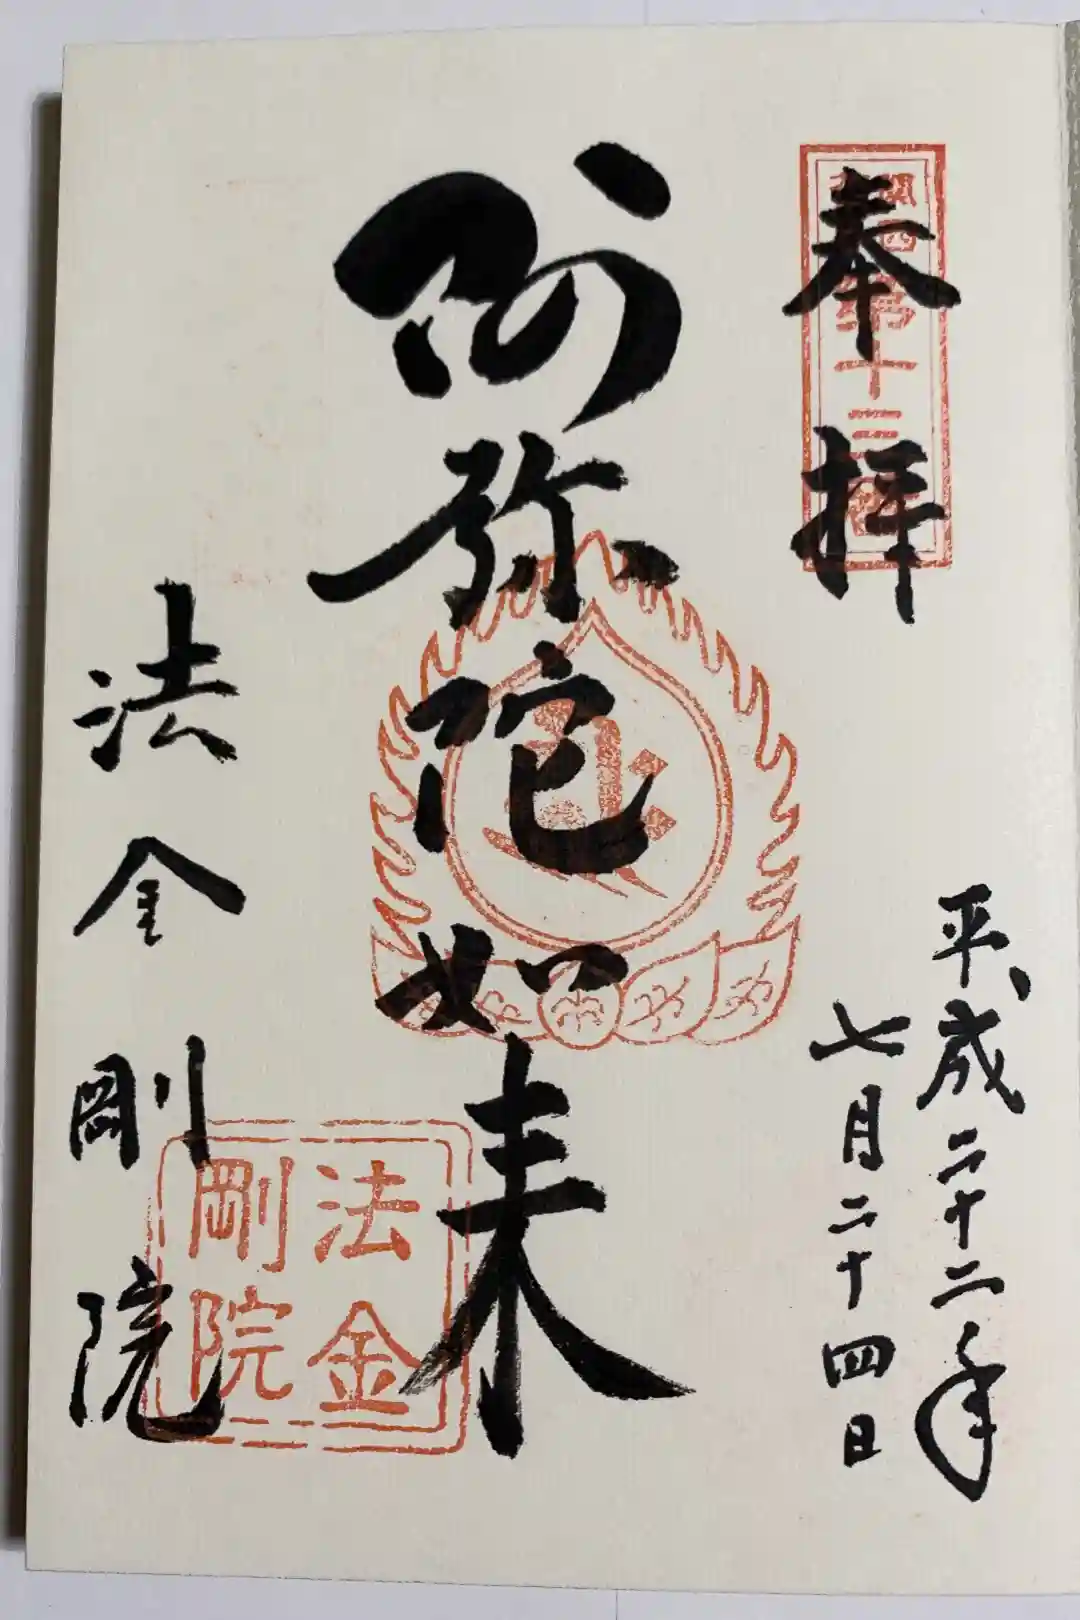 奉拝
平成二十二年
七月二十四日
阿弥陀如来
法金剛院
法金
剛院